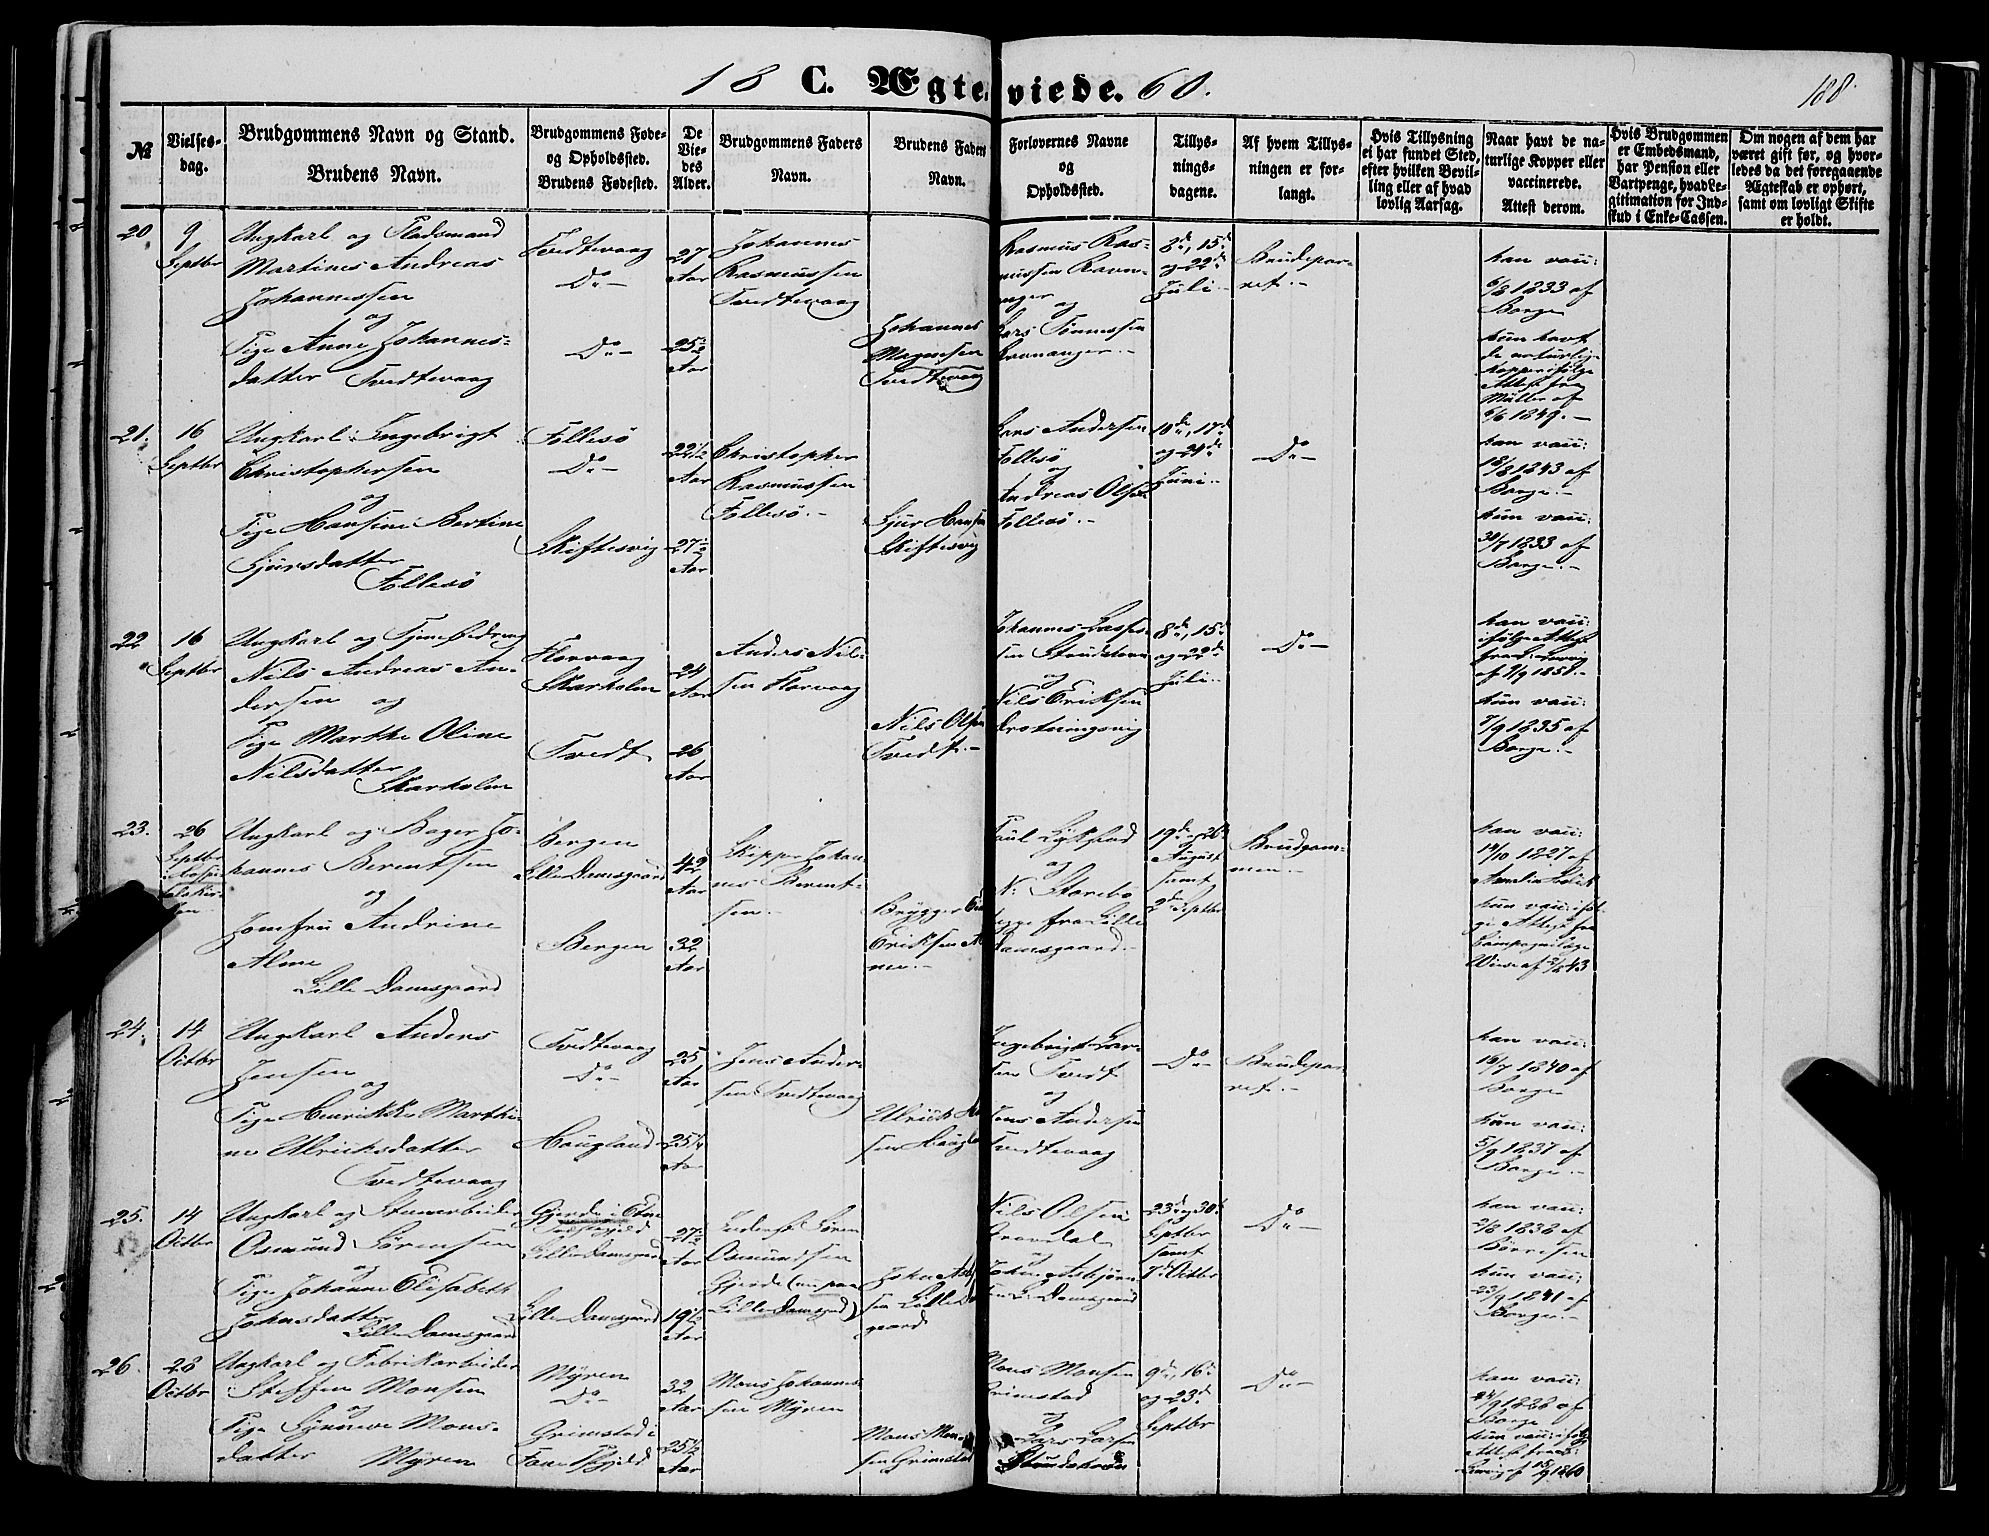 18 C. Ægteviede. 60.
188.
№
Vielses-
dag.
Brudgommens Navn og Stand.
Brudens Navn.
Brudgommens Føde-
og Opholdssted.
Brudens Fødested.
De
Vie-
des
Alder.
Brudgommens Faders
Navn.
Brudens Faders
Navn.
Forlovernes Navne
og
Opholdssted.
Tillys-
nings-
dagene.
Af hvem Tillys-
ningen er for-
langt.
Hvis Tillysning
ei har fundet Sted,
efter hvilken Bevil-
ling eller af hvad
lovlig Aarsag.
Naar havt de na-
turlige Kopper eller
vaccinerede.
Attest derom.
Hvis Brudgommen
er Embedsmand,
har Pension eller
Vartpenge, hvad Le-
gitimation for Ind-
skud i Enke-Cassen.
Om nogen af dem har
været gift før, og hvor-
ledes da det foregaaende
Ægteskab er ophørt,
samt om lovligt Skifte
er holdt.
20
9
Septbr
Ungkarl og Pladsmand
Martines Andreas
Johannessen
og
Pige Anne Johannes-
datter Tvedtevaag
Tvedtevaag
Do -
Do -
27
Aar
25 1/2
Aar
Johannes
Rasmussen
Tvedtevaag
Johannes
Magnesen
Tvedtevaag
Rasmus Ras-
mussen Ravn-
anger
og
Lars Tønnessen
Ravnanger. -
8de, 15de
og 22de
Juli. -
Brudepar-
ret. -
han vacc:
6/8 1833 af
Borge
hun havt
de naturlige
Kopper ifølge
Attest fra
Müller af
6/6 1849. -
21.
16
Septbr
Ungkarl Ingebrigt
Christophersen
og
Pige Hansine Bertine
Sjursdatter
Follesö
Follesö
Do -
Skiftesvig
22 1/2
Aar
27 1/2
Aar
Christopher
Rasmussen
Follesö. -
Sjur Hansen
Skiftesvig
Lars Andersen
Follesö
og
Andreas Olsen
Follesö. -
10de, 17de
og 24de
Juni. -
Do -
han vacc:
18/8 1843 af
Borge. -
hun vacc:
30/7 1833 af
Borge. -
22
16
Septbr
Ungkarl og Tjenestedreng
Nils Andreas An-
dersen og
Pige Marthe Oline
Nilsdatter
Skarholm
Florvaag
Skarholm
Tvedt
24
Aar
26
Aar
Anders Nil-
sen Florvaag
Nils Olsen
Tvedt. -
Johannes Lasse-
sen
og
Nils Eriksen
Drotningsvig
8de, 15de
og 22de
Juli. -
Do -
han vacc:
ifølge Attest
hun vacc:
7/9 1835 af
Borge. -
23.
26
Septbr
Ungkarl og Bager Jo-
hannes Berentsen
og
Jomfru Andrine
Alme
Lille Damsgaard
Bergen
Lille Damsgaard
Bergen
42
Aar
32
Aar
Skipper Johan-
nes Berent-
sen. -
Brygger
Eriksen Al-
me. -
og
fra Lille
Damsgaard. -
19de og 26de
August
samt
2de Septbr
Brudgom-
men. -
han vacc:
14/10 1827 af
hun vacc: iföl-
ge Attest fra
24.
14
Octbr
Ungkarl Anders
Jensen
og
Pige Henrikke Marthi-
ne Ulriksdatter
Tvedtevaag
Tvedtevaag
Do -
Haugland
25
Aar
25 1/4
Aar
Jens Ander-
sen Tvedtevaag
Ulrik
sen Haugland
Ingebrigt Lar-
sen Tvedt
og
Jens Andersen
Tvedtevaag
Do -
Brudepar-
ret. -
han vacc:
16/7 1840 af
Borge
hun vacc:
5/9 1837 af
Borge. -
25.
14
Octbr
Ungkarl og Stenarbeider
Osmund Sörensen
og
Pige Johanne Elisabeth
Johnsdatter
Lille Damsgaard
Gjerde i Etne
Præstegjeld
Lille Damsgaard
Lille Damsgaard
27 1/2
Aar
19 1/2
Aar
Inderst Sören
Osmundsen
Gjerde (nu paa
Lille Damsgaard)
John Asbj
sen Lille Dams
gaard
Nils Olsen
Gravdal
og
John Asbjörn-
sen L. Damsgaard
23de og 30de
Septbr
samt
7de Octbr
Do -
han vacc:
2/8 1838 af
Börresen
hun vacc:
23/9 1841 af
Borge. -
26.
28
Octbr
Ungkarl og Fabrikarbeider
Steffen Monsen
og
Pige Synneve Mons-
datter Myren
Myren
Do -
Grimstad i
Fane Pgjeld
32
Aar
25 1/2
Aar
Mons Johannes-
sen Myren
Mons Mon-
sen Grimstad
Mons Monsen
Grimstad
og
Lars Larsen
9de, 16de
og 23de
Septbr
Do -
han vacc:
24/9 1828 af
Borge
hun vacc: ifölge